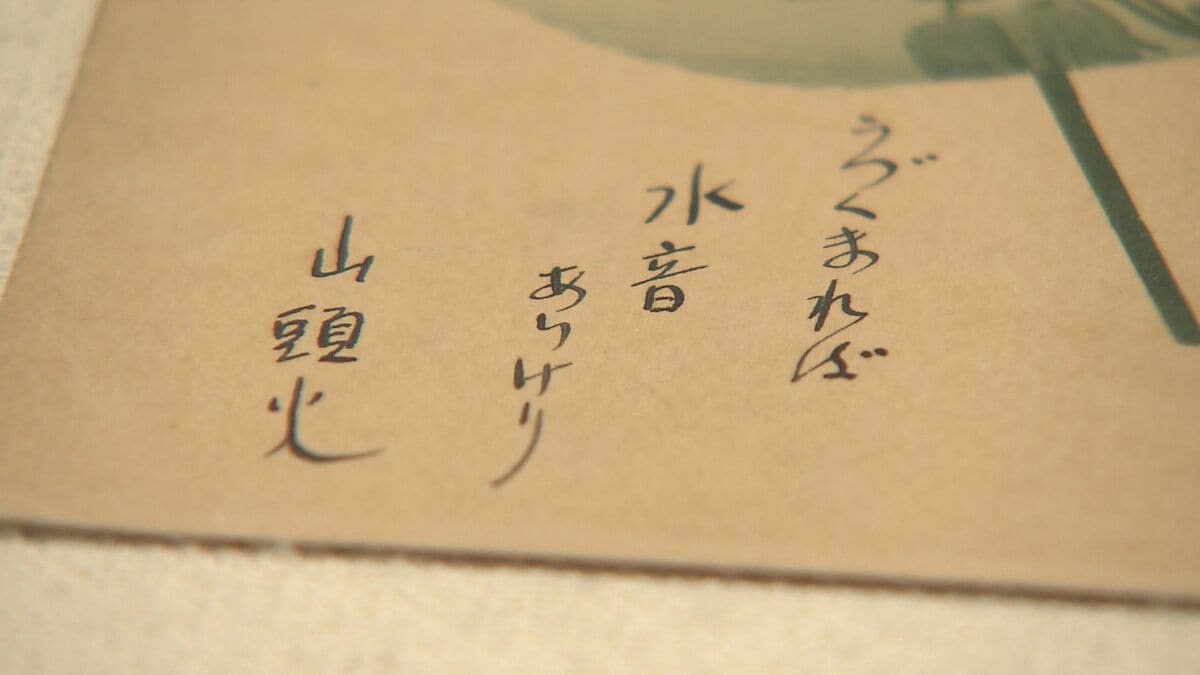 うづくまれば
水音
ありけり
山頭火